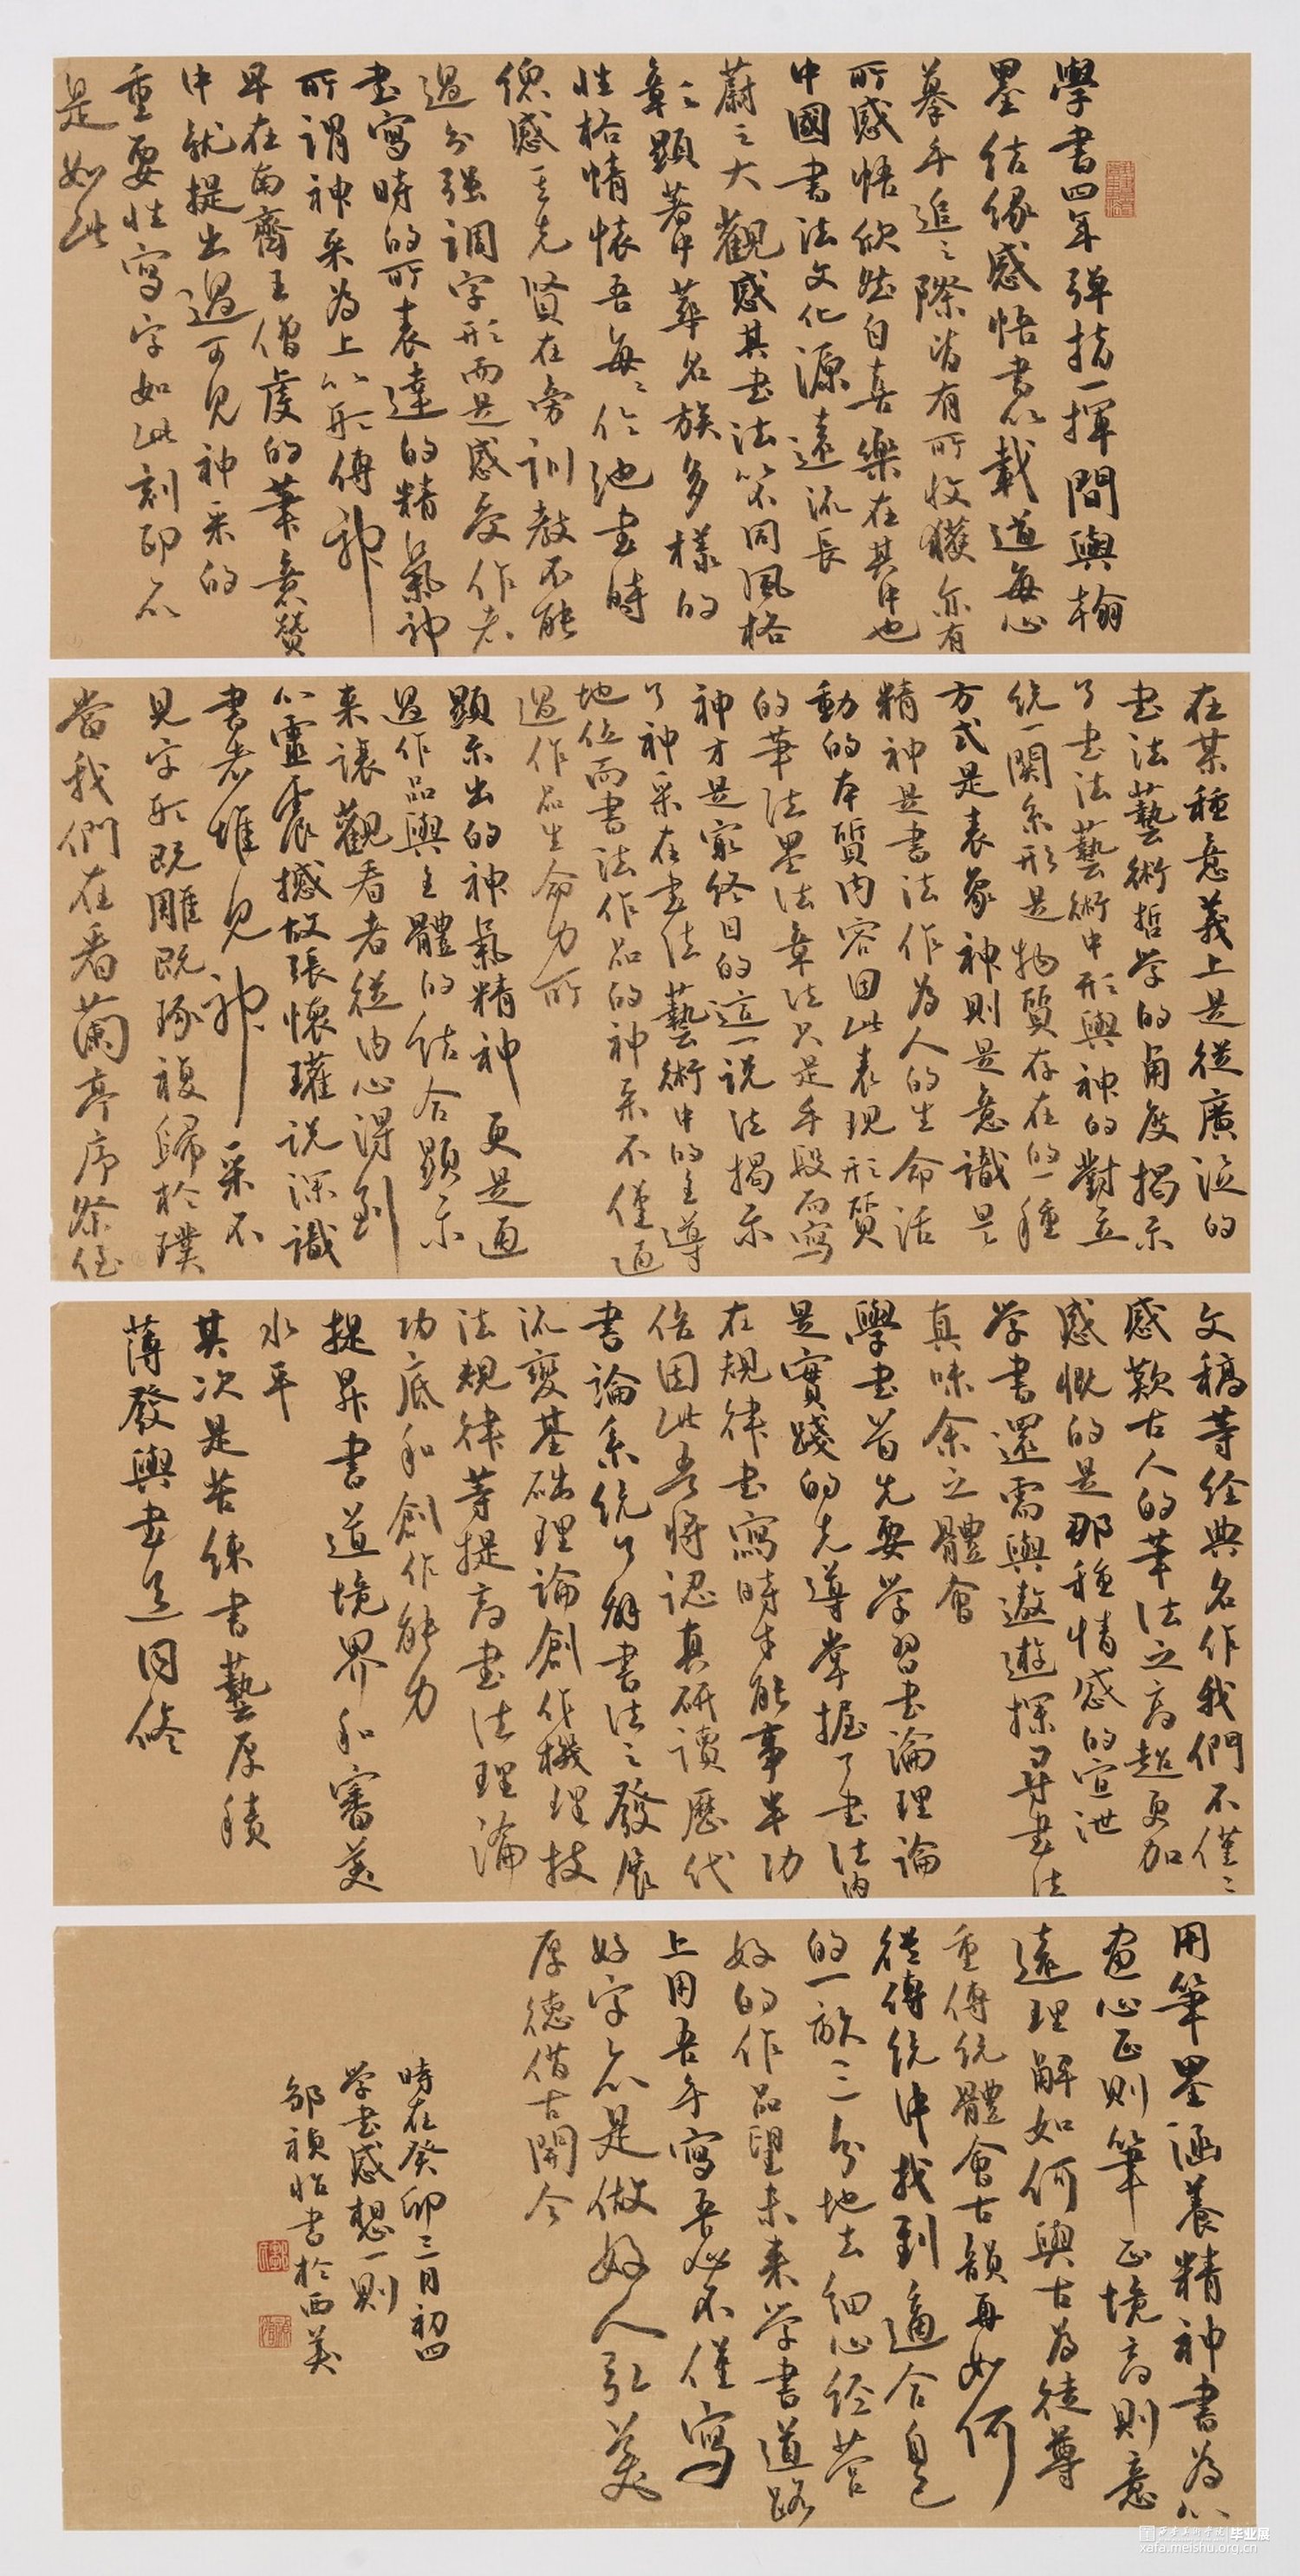 學書四年彈指一揮間與翰
墨結緣感悟書以載道每心
摹手追之際皆有所收獲亦有
所感悟欣然自喜樂在其中也
中國書法文化源遠流長
蔚之大觀感其書法不同風格
彰彰顯著中華名族多樣的
性格情懷吾每每臨池書時
總感其先賢在旁訓教不能
過分强調字形而是感受作者
書寫時的所表達的精氣神
所謂神采為上以形傳神
早在南齊王僧虔的筆意贊
中就提出過可見神采的
重要性寫字如此刻印亦
是如此
在某種意義上是從廣泛的
书法藝術哲学的角度揭示
了书法藝術中形與神的對立
统一関系形是物質存在的一種
方式是表象神則是意識是
精神是書法作為人的生命活
動的本質内容因此表现形質
的筆法墨法章法只是手段而寫
神才是最終目的這一説法揭示
了神采在书法藝術中的主導
地位而書法作品的神采不僅通
過作品生命力所
顯示出的神氣精神更是通
過作品與主體的结合顯示
来讓觀看者從内心得到
心靈震撼故張懷瓘説深識
書者惟見神采不
見字形既雕既琢複歸於璞
當我們在看蘭亭序祭侄
文稿等经典名作我們不僅僅
感歎古人的筆法之高超更加
感慨的是那種情感的宣泄
学書還需與遨遊探尋书法
真味余之體會
學书首先要学習书論理論
是實踐的先導掌握了书法内
在規律书寫時才能事半功
倍因此吾將認真研讀歷代
書論系统了解書法之發展
流變基础理論創作機理技
法規律等提高书法理論
功底和創作能力
提昇書道境界和審美
水平
其次是苦练書藝厚積
薄發與书道同修
用筆墨涵養精神書為心
画心正則筆正境高則意
遠理解如何與古為徒尊
重傳统體會古韻再如何
從傳统中找到適合自己
的一畝三分地去细心经营
好的作品望未来学書道路
上用吾手寫吾心不僅寫
好字亦是做好人弘美
厚德借古開今
時在癸卯三月初四
学书感想一則
邹禎怡書於西美
西安美術学院 毕业展
xafa.meishu.org.cn